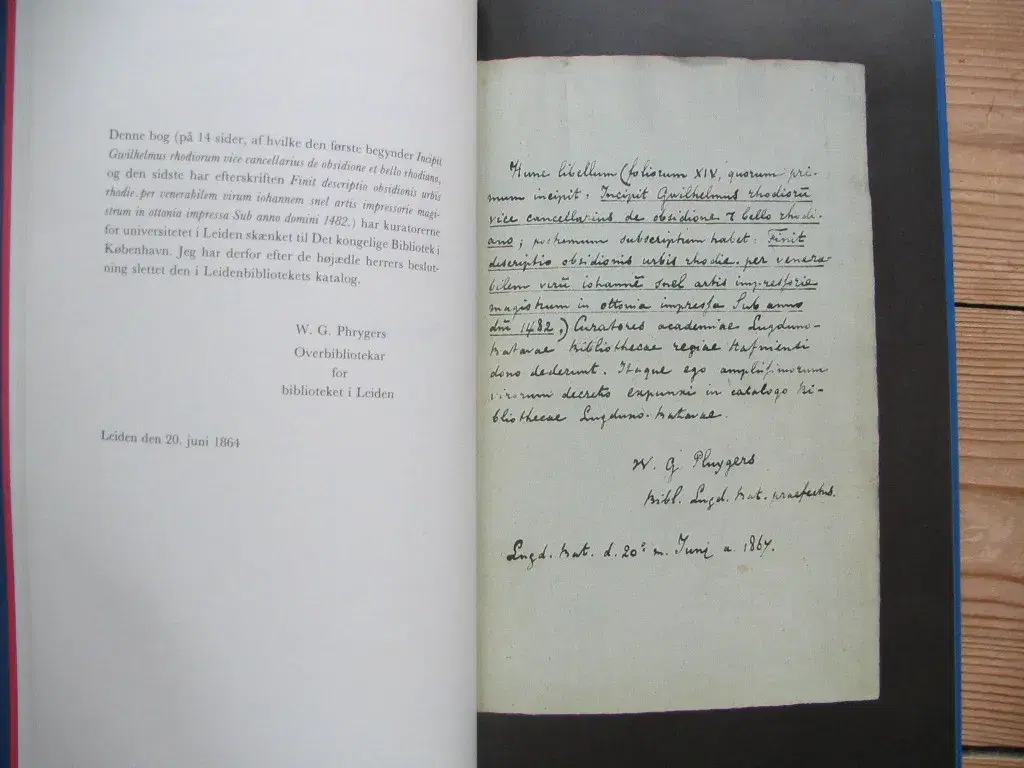 Denne bog (på 14 sider, af hvilke den første begynder Incipit
Gwilhelmus rhodiorum vice cancellarius de obsidione et bello rhodiano,
og den sidste har efterskriften Finit descriptio obsidionis urbis
rhodie. per venerabilem virum iohannem snel artis impressorie magi-
strum in ottonia impressa Sub anno domini 1482.) har kuratorerne
for universitetet i Leiden skænket til Det kongelige Bibliotek i
København. Jeg har derfor efter de højædle herrers beslut-
ning slettet den i Leidenbibliotekets katalog.
W. G. Phrygers
Overbibliotekar
for
biblioteket i Leiden
Leiden den 20. juni 1864
Hunc libellum (foliorum XIV, quorum pri-
mum incipit: Incipit Gwilhelmus rhodiorū
vice cancellarius de obsidione ⁊ bello rhodi-
ano; postremum subscriptum habet: Finit
descriptio obsidionis urbis rhodie. per venera-
bilem virū iohannē snel artis impressorie
magistrum in ottonia impressa Sub anno
dñi 1482.) Curatores academiae Lugduno-
batavae bibliothecae regiae hafniensi
dono dederunt. Itaque ego amplissimorum
virorum decreto expunxi in catalogo bi-
bliothecae Lugduno-batavae.
W. G. Pluygers
bibl. Lugd. bat. praefectus.
Lugd. bat. d. 20º m. Junj a. 1864.